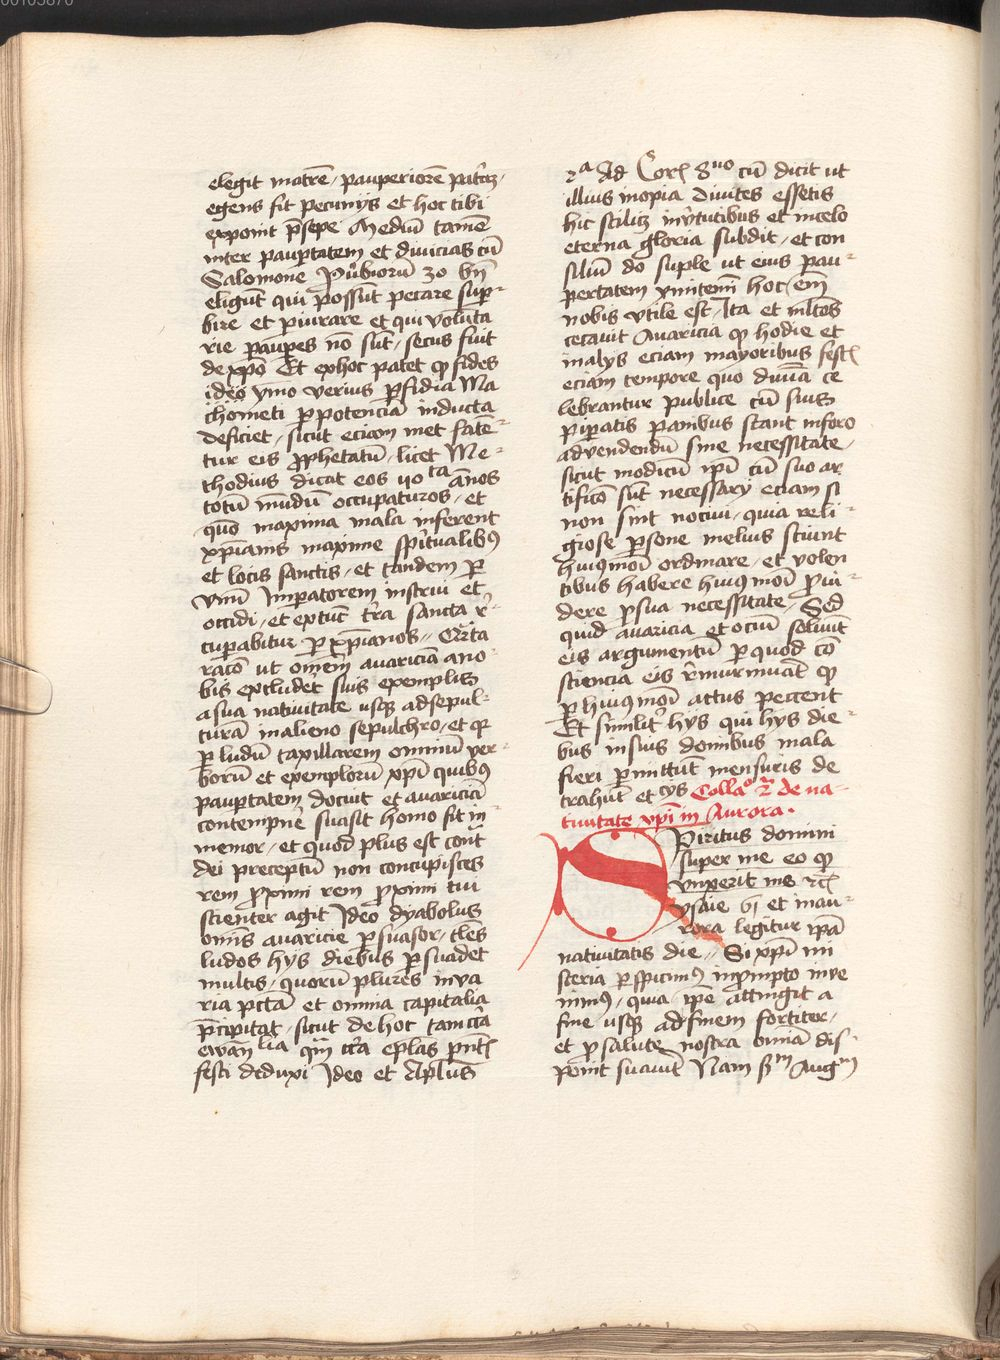 elegit matrē pauperiorē patrē
egens fit pecunijs et hoc tibi
exponit p̄sepe Mediū tamē
inter paupertatem et diuicias cū
Salomone Puͦbiorū 30 bn̄
eligunt qui possūt pecare super-
bire et piurare et qui volunta
rie paupes no sūt, secus fuit
de xpō Et ex hoc patet qp fides
ideo vmo verius pfidia Ma
chometi p potenciā inducta
deficiet, sicut eciam met fatē-
tur eis pphetatū, licet Me-
thodius dicat eos
totū mūdū occupaturos, et
quō maxima mala inferent
xpīanis maxime spūalibꝫ
et locis sanctis, et tandem p
vnū Imperatorem instrui et
occidi, et ex tūc t̄ra sancta r̄-
cuperabitur p xpīanos,, Quarta
racō ut omēm auariciā a no-
bis excludet suis exemplis
a sua natiuitate usqꝫ ad sepul-
turā in alieno sepulchro, et qp
p ludū taxillarem omniū ver-
borū et exemplorū xpī quibꝫ
paupertatem docuit et auariciā
contempnē suasit homo fit in
memor, et quod plus est cont
dei preceptū non concupisces
rem proximi rem proximi tui
scienter agit Ideo dyabolus
omīs auaricie psuasor, tales
ludos hys diebus psuadet
multis, quorū plures in va
ria pctā et omnia capitalia
p̄cipitat, sicut de hoc tam circa
ewanlia qm̄ circa eplās p̄ntis
festi deduxi Ideo et Aplus
2ᵃ Ad Cor 8ᵘᵒ cū dicit ut
illius inopia diuites essetis
hic scilicꝫ in virtutibus et in celo
eterna gloria subdit, et con
siliū do suple ut eius pau-
pertatem ymitemī hoc em̄
nobis vtile est, Ita et multos
cecauit Auaricia qp hodie et
in alys eciam mayoribus fest
eciam tempore quo diuīa ce
lebrantur publice cū suis
piperatis panibus stant in foro
ad vendendū sine necessitate,
sicut modicū ipī cū suo ar
tificō sūt necessarij eciam si
non sint nociui, quia reli-
giose psone melius sciunt
huiqmōi ordinare, et volen
tibus habere huiqmōi prouī-
dere p sua necessitate, Sed
quid auaricia et ociū soluūt
eis argumentū p quod cō
sciencia eis r̄murmurat qp
p huiqmōi actus peccent
Et similit̄ hys qui hys die-
bus in suis domibus mala
fieri pmittūt mensuris de
trahūt et cetis Collaº 2ᵃ de na-
tiuitate xpī in Aurora.
Spiritus domini
super me eo qp
vnxerit me etc
ysaie 61 et in au-
rora legitur ipā
natiuitatis die,, Si xpī mi
steria pspicimꝰ in prompto inue
nimꝰ, quia ipē attingit a
fine usqꝫ ad finem fortiter,
et p salute nostra omnia dis-
ponit suauit̄ Nam scdm Augm